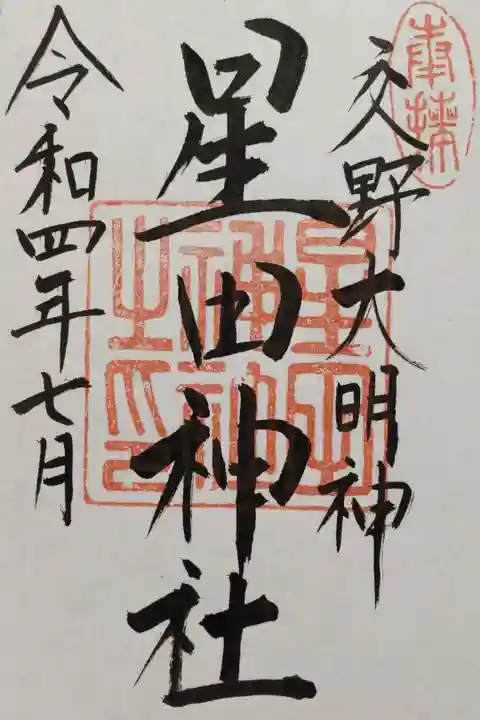 奉拝
交野大明神
星田神社
令和四年七月